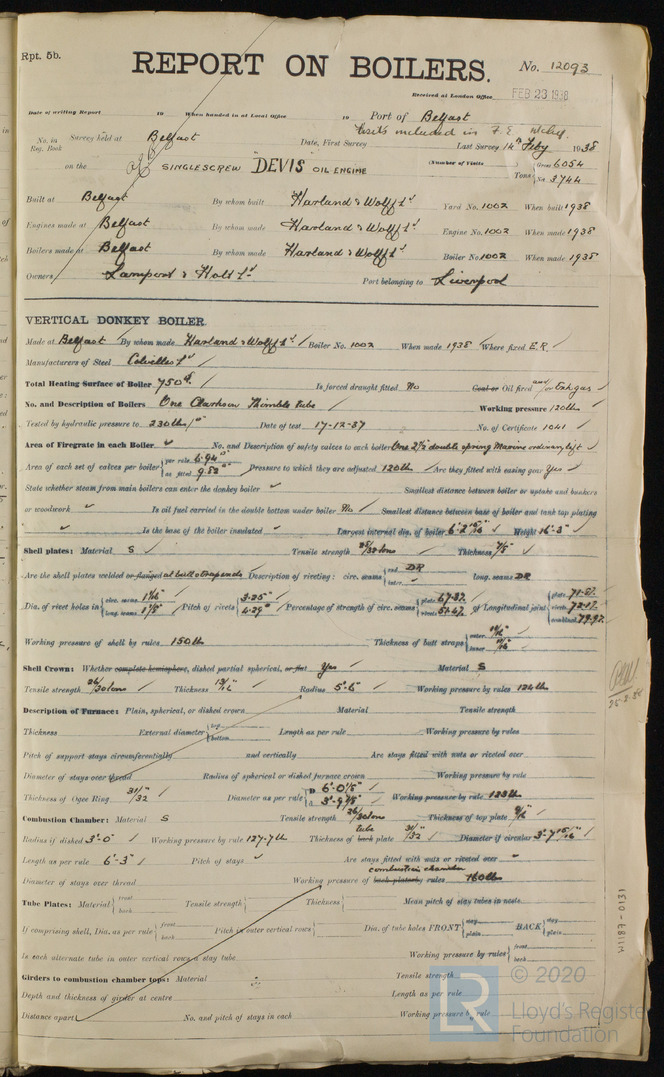 Rpt. 5b.
REPORT ON BOILERS.
No. 12093
Received at London Office FEB 23 1938
Date of writing Report 19 When handed in at Local Office 19 Port of Belfast
No. in Reg. Book Survey held at Belfast Date, First Survey Visits included in F.E. Last Survey 14th Feby 1938
on the SINGLESCREW "DEVIS" OIL ENGINE (Number of Visits ) Tons Gross 6054 Net 3744
Built at Belfast By whom built Harland & Wolff Ld Yard No. 1002 When built 1938
Engines made at Belfast By whom made Harland & Wolff Ld Engine No. 1002 When made 1938
Boilers made at Belfast By whom made Harland & Wolff Ld Boiler No. 1002 When made 1938
Owners Lamport & Holt Ld Port belonging to Liverpool
VERTICAL DONKEY BOILER.
Made at Belfast By whom made Harland & Wolff Ld Boiler No. 1002 When made 1938 Where fixed E.R.
Manufacturers of Steel Colvilles Ld
Total Heating Surface of Boiler 750 Is forced draught fitted No Coal or Oil fired and/or Exh. gas
No. and Description of Boilers One Clarkson Thimble tube Working pressure 120 lb
Tested by hydraulic pressure to 230 lbs/□" Date of test 17-12-37 No. of Certificate 1041
Area of Firegrate in each Boiler No. and Description of safety valves to each boiler One 2½" double spring Marine ordinary lift
Area of each set of valves per boiler per rule 6.94 □" as fitted 9.82 □" Pressure to which they are adjusted 120 lb Are they fitted with easing gear Yes
State whether steam from main boilers can enter the donkey boiler Smallest distance between boiler or uptake and bunkers
or woodwork Is oil fuel carried in the double bottom under boiler No Smallest distance between base of boiler and tank top plating
Is the base of the boiler insulated Largest internal dia. of boiler 6'-2 15/16" Height 16'-3"
Shell plates: Material S Tensile strength 28/32 tons Thickness 7/8"
Are the shell plates welded or flanged at butt strap ends Description of riveting: circ. seams end DR inter. long. seams DR
Dia. of rivet holes in circ. seams 1 1/16" long. seams 1 1/8" Pitch of rivets 3.25" 4.29" Percentage of strength of circ. seams plate 67.3% rivets of Longitudinal joint plate rivets combined
Working pressure of shell by rules 150 lb Thickness of butt straps outer inner
Shell Crown: Whether complete hemisphere, dished partial spherical, or flat Yes Material S
Tensile strength 26/30 tons Thickness 13/16" Radius 5'-6" Working pressure by rules 124 lb
Description of Furnace: Plain, spherical, or dished crown Material Tensile strength
Thickness External diameter top bottom Length as per rule Working pressure by rules
Pitch of support stays circumferentially and vertically Are stays fitted with nuts or riveted over
Diameter of stays over thread Radius of spherical or dished furnace crown Working pressure by rule
Thickness of Ogee Ring 31/32" Diameter as per rule D 6'-0 1/8" d 3'-9 7/8" Working pressure by rule 123 lb
Combustion Chamber: Material S Tensile strength 26/30 tons Thickness of top plate 9/16"
Radius if dished 3'-0" Working pressure by rule 127.7 lb Thickness of back tube plate 31/32" Diameter if circular 3'-7 15/16"
Length as per rule 6'-3" Pitch of stays Are stays fitted with nuts or riveted over
Diameter of stays over thread Working pressure of back plates by combustion chamber rules 160 lb
Tube Plates: Material front back Tensile strength Thickness Mean pitch of stay tubes in nests
If comprising shell, Dia. as per rule front back Pitch in outer vertical rows Dia. of tube holes FRONT stay plain BACK stay plain
Is each alternate tube in outer vertical rows a stay tube Working pressure by rules front back
Girders to combustion chamber tops: Material Tensile strength
Depth and thickness of girder at centre Length as per rule
Distance apart No. and pitch of stays in each Working pressure by rule
W1187-0131
LR
© 2020
Lloyd's Register
Foundation